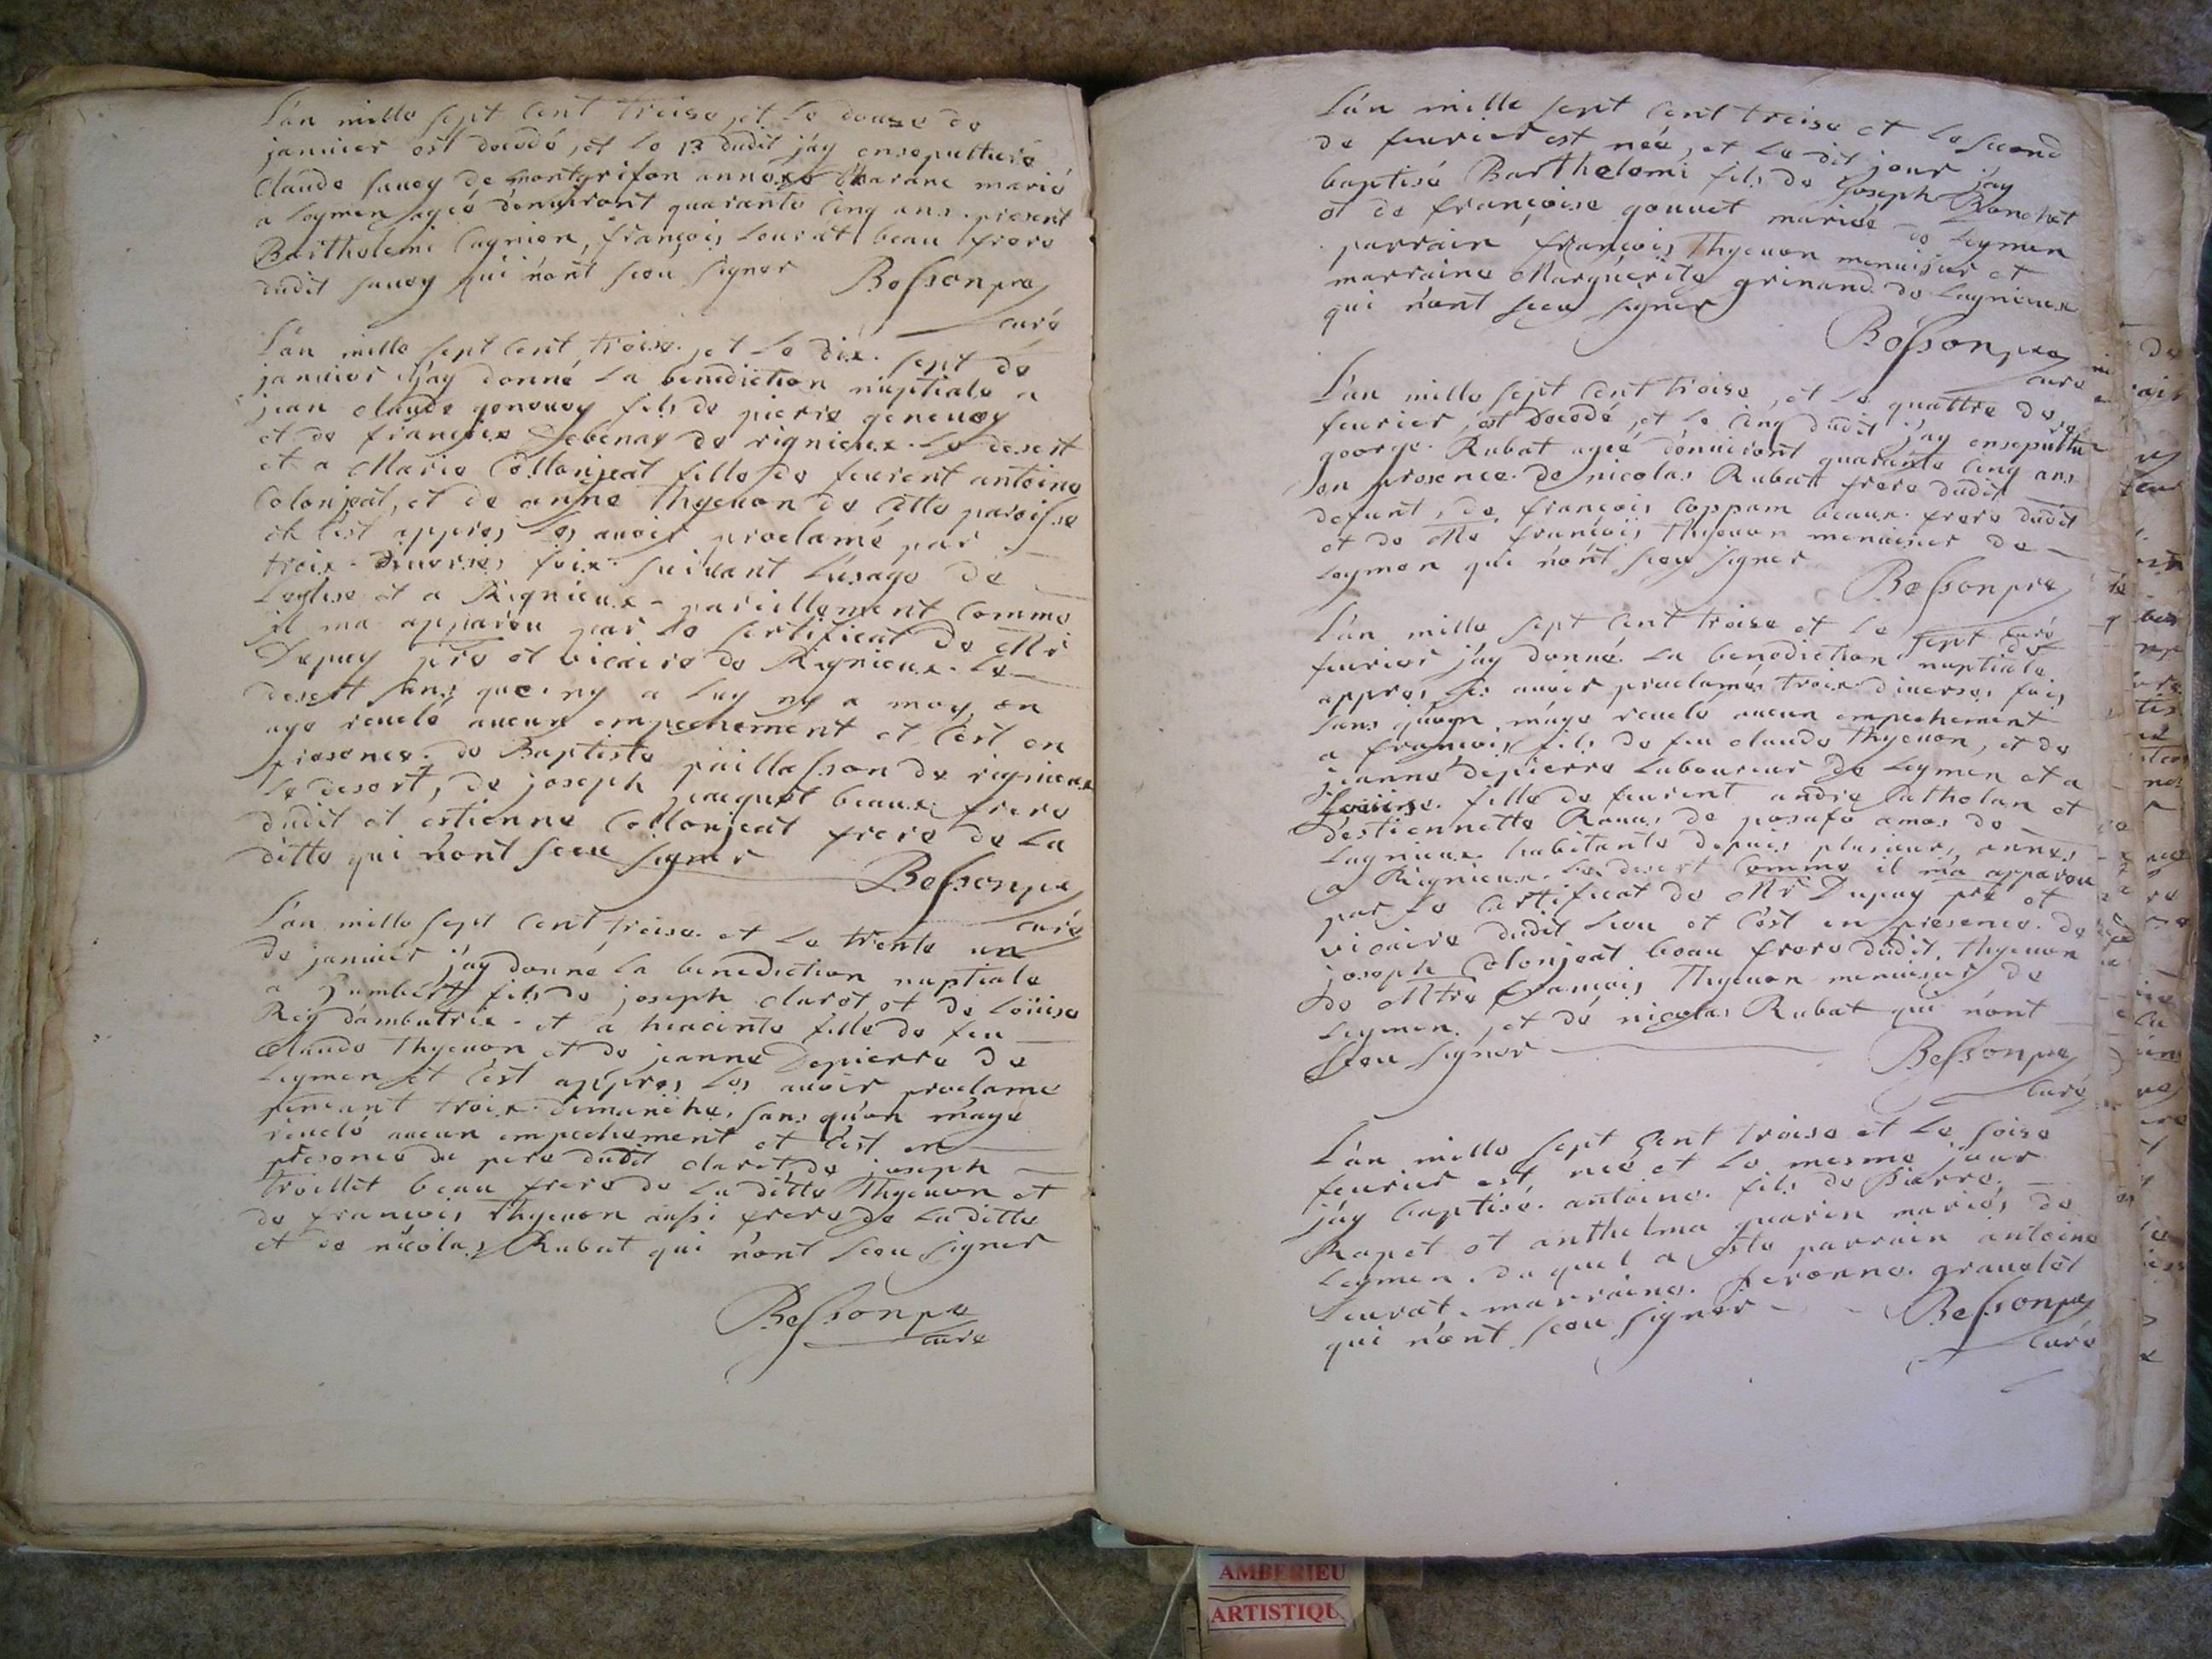 L'an mille sept Cent treise, et Le douze de
januier est decedé, et le 13 dudit j'ay ensepulturé
Claude sauey de montgrifon annexe d'arane marié
a Leymen ageé d'enuiront quarante Cinq ans. present
Bartholemi Cagnion, françois Lourat beau frere
dudit sauey qui n'ont sceu signer Besson pre
curé
L'an mille sept Cent treise. et Le dix. sept de
januier j'ay donné La benediction nuptiale a
jean claude geneuey fils de pierre geneuey
et de françoise Debenay de rignieux. Le desert
et a Marie Collonjeat fille de feurent antoine
Colonjeat, et de anne Thyeuon de Cette paroisse
et C'est appres les auoir proclamé par
trois diuerses foix suiuant L'usage de
L'eglise et a Rignieux pareillement Comme
il ma apparou par Le sertificat de Mr
Dupuy pre et vicaire de Rignieux. Le
desert sans que ny a Luy ny a moy, on
aye reuelé aucun empechement et C'est en
presence. de Baptiste paillasson de rignieux
Le desert, de joseph jacquet beaux frere
dudit et estienne Collonjeat frere de La
ditte qui n'ont sceu signer Besson pre
curé
L'an mille sept Cent treise. et Le trente un
de januier j'ay donné La benediction nuptiale
a humbert fils de joseph claret et de Loüise
Rey d'ambutrix. et a hiacinte fille de feu
Claude Thyeuon et de jeanne Depierre de
Leymen et C'est appres Les auoir proclamé
pendant troix dimanches sans qu'on m'aye
reuelé aucun empechement et C'est en
presence du pere dudit claret, de joseph
troillet beau frere de La ditte Thyeuon et
de françois Thyeuon aussi frere de Laditte
et de nicolas Rubat qui n'ont sceu signer
Besson pre
curé
L'an mille sept Cent treise et Le second
de feurier est neé, et Le dit jour j'ay
baptisé Barthelemi fils de joseph Ronchet
et de françoise gouuet marieé de Leymen
parrain françois Thyeuon menuisier et
marraine Marguerite grinand de Lagnieux
qui n'ont sceu signer
Besson pre
curé
L'an mille sept Cent treise, et Le quattre de
feurier, est decedé, et Le Cinq dudit j'ay ensepultu
george. Rubat ageé d'enuiront quarante Cinq ans
en presence. de nicolas Rubat frere dudit
defunt, de françois Coppam beaux. frere dudit
et de Me françois Thyeuon menuisier de
Leymen qui n'ont sceu signer
Besson pre
curé
L'an mille sept Cent treise et Le sept de
feurier j'ay donné. La benediction nuptiale
appres les auoir proclamés troix diuerses fois
sans qu'on m'aye reuelé aucun empechement
a françois fils de feu claude Thyeuon, et de
jeanne depierre Laboureur de Leymen et a
Louise. fille de feurent andre et
d'estiennette Rauas de
Lagnieux habitante depuis plusieurs annes
a Rignieux. Le desert Comme il m'a apparou
par Le Certificat de Mr Dupuy pre et
vicaire dudit Lieu et C'est en presence. de
joseph Colonjeat beau frere dudit. Thyeuon
de Mtre françois Thyeuon menuisier de
Leymen, et de nicolas Rubat qui n'ont
sceu signer Besson pre
Curé
L'an mille sept Cent treise et Le seise
feurier est neé et Le mesme jour
j'ay baptisé. antoine. fils de Pierre.
Rapet et anthelma guarin mariés de
Leymen. duquel a este parrain antoine
Leurat. marraine. peronne. grauelet
qui n'ont sceu signer Besson pre
Curé
AMBERIEU
ARTISTIQU